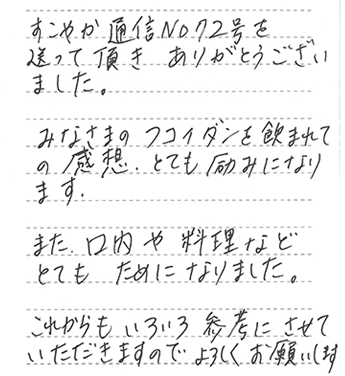 すこやか通信No72号を
送って頂き ありがとうござい
ました。
みなさまのフコイダンを飲まれて
の感想、とても励みになり
ます.
また、口内や料理など
とても ためになりました。
これからも いろいろ 参考に させて
いただきますので よろしく お願いします